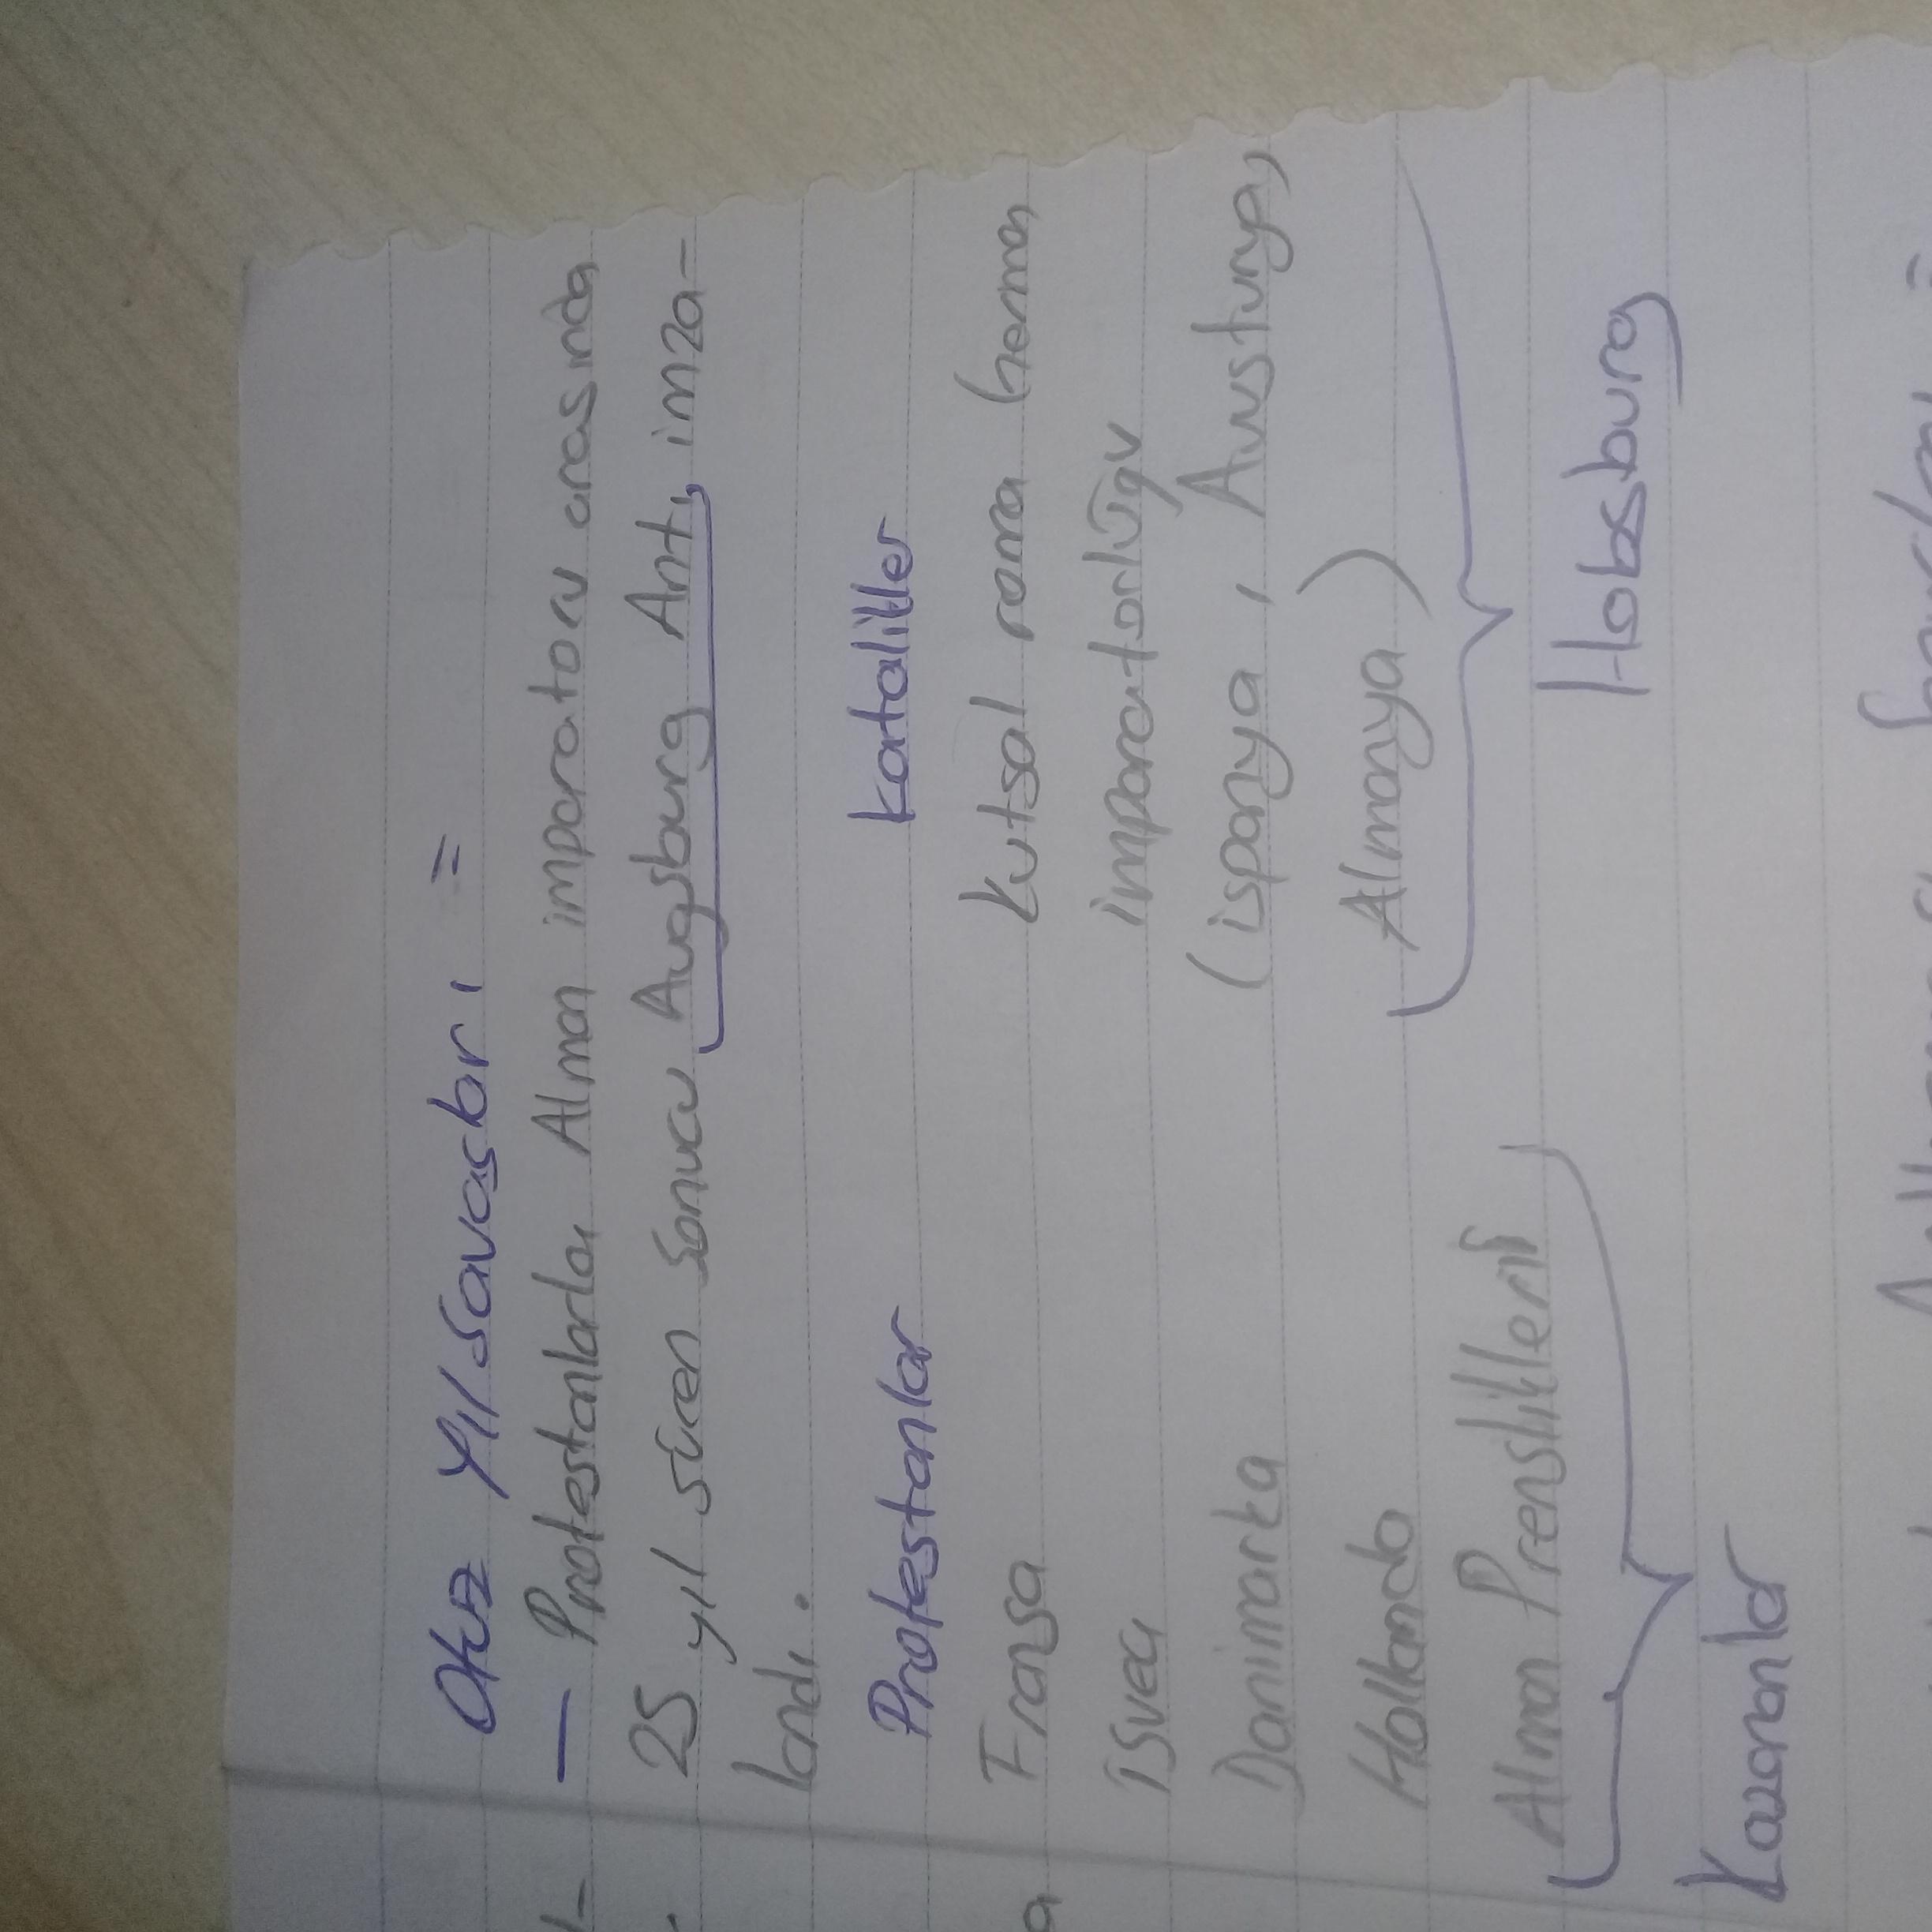 Otuz Yıl Savaşları =
— Protestanlarla Alman imparatoru arasında
25 yıl süren Sonucu Augsburg Ant, imza-
landı.
Protestanlar katalikler
Fransa Kutsal roma Cerma
isveç imparatorlüğu
Danimarka (ispanya, Avusturya,
Hollanda Almanya)
Alman Prenslikleri
Habsburg
Kazananlar